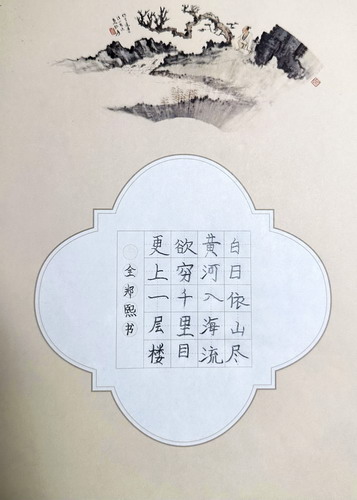 白日依山尽
黄河入海流
欲穷千里目
更上一层楼
全郑熙书